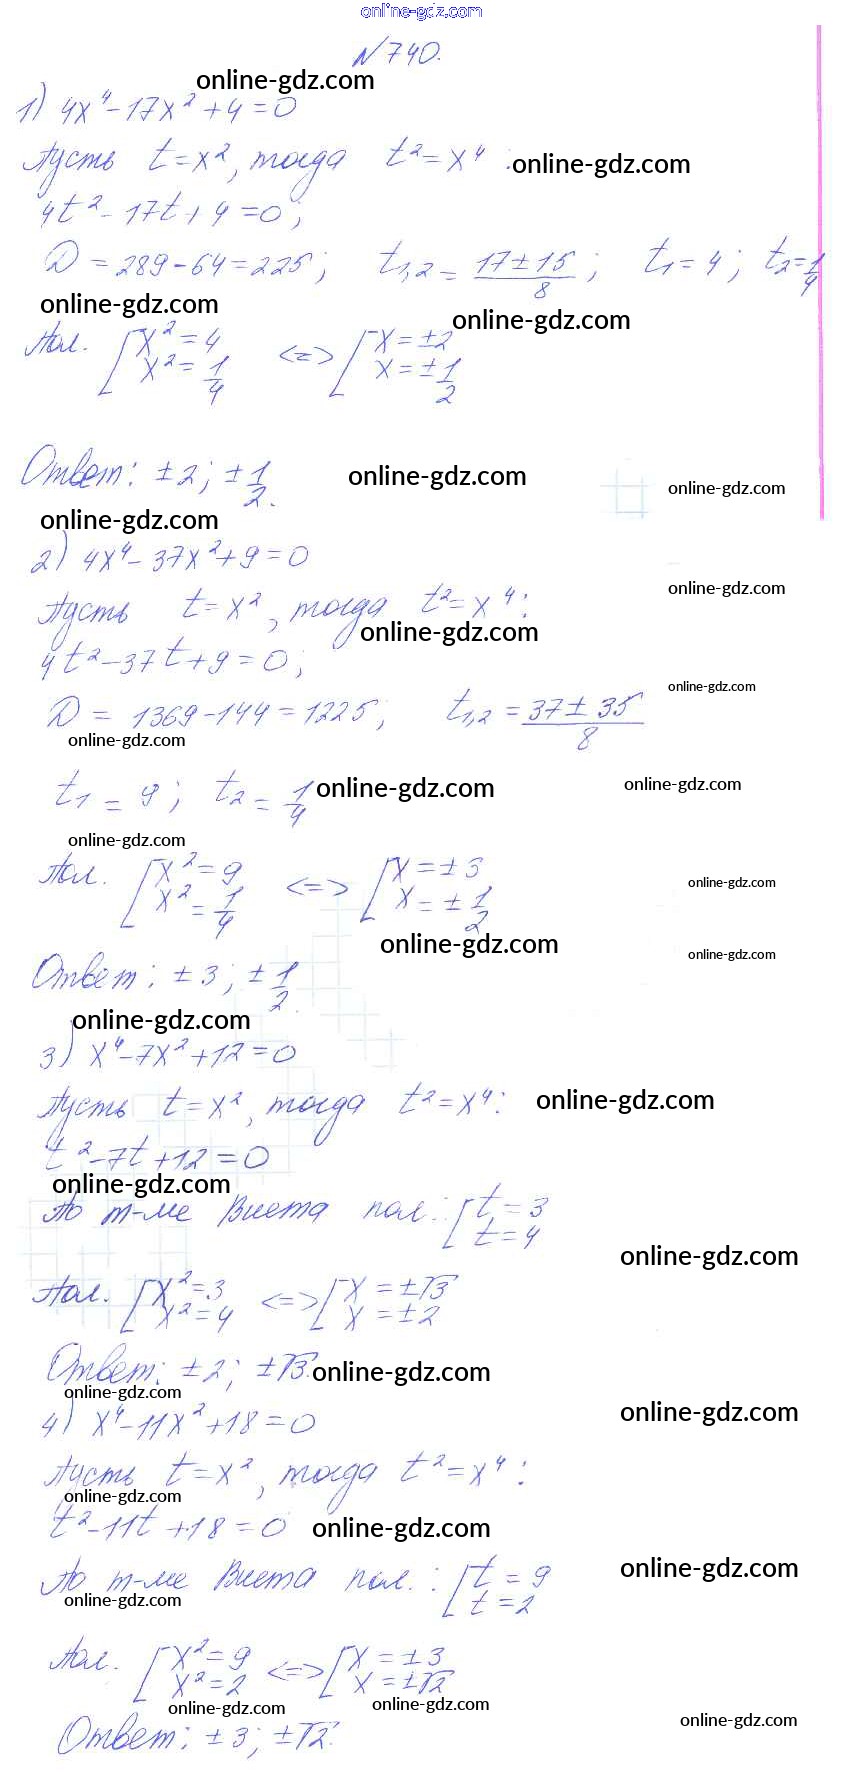 online-gdz.com
№740.
online-gdz.com
1) 4x⁴-17x²+4=0
Пусть t=x², тогда t²=x⁴: online-gdz.com
4t²-17t+4=0;
D=289-64=225; t₁,₂=(17±15)/8; t₁=4; t₂=1/4
online-gdz.com online-gdz.com
Пол. [x²=4 <=> [x=±2
x²=1/4 x=±1/2
Ответ: ±2; ±1/2. online-gdz.com online-gdz.com
online-gdz.com
2) 4x⁴-37x²+9=0
online-gdz.com
Пусть t=x², тогда t²=x⁴:
online-gdz.com
4t²-37t+9=0;
online-gdz.com
D=1369-144=1225; t₁,₂=(37±35)/8
online-gdz.com
t₁=9; t₂=1/4 online-gdz.com online-gdz.com
online-gdz.com
Пол. [x²=9 <=> [x=±3 online-gdz.com
x²=1/4 x=±1/2
online-gdz.com online-gdz.com
Ответ: ±3; ±1/2.
online-gdz.com
3) x⁴-7x²+12=0
Пусть t=x², тогда t²=x⁴: online-gdz.com
t²-7t+12=0
online-gdz.com
По т-ме Виета пол.: [t=3
t=4
online-gdz.com
Пол. [x²=3 <=> [x=±√3
x²=4 x=±2
Ответ: ±2; ±√3. online-gdz.com
online-gdz.com online-gdz.com
4) x⁴-11x²+18=0
Пусть t=x², тогда t²=x⁴:
online-gdz.com
t²-11t+18=0 online-gdz.com
По т-ме Виета пол.: [t=9 online-gdz.com
t=2
online-gdz.com
Пол. [x²=9 <=> [x=±3
x²=2 x=±√2
online-gdz.com online-gdz.com online-gdz.com
Ответ: ±3; ±√2.